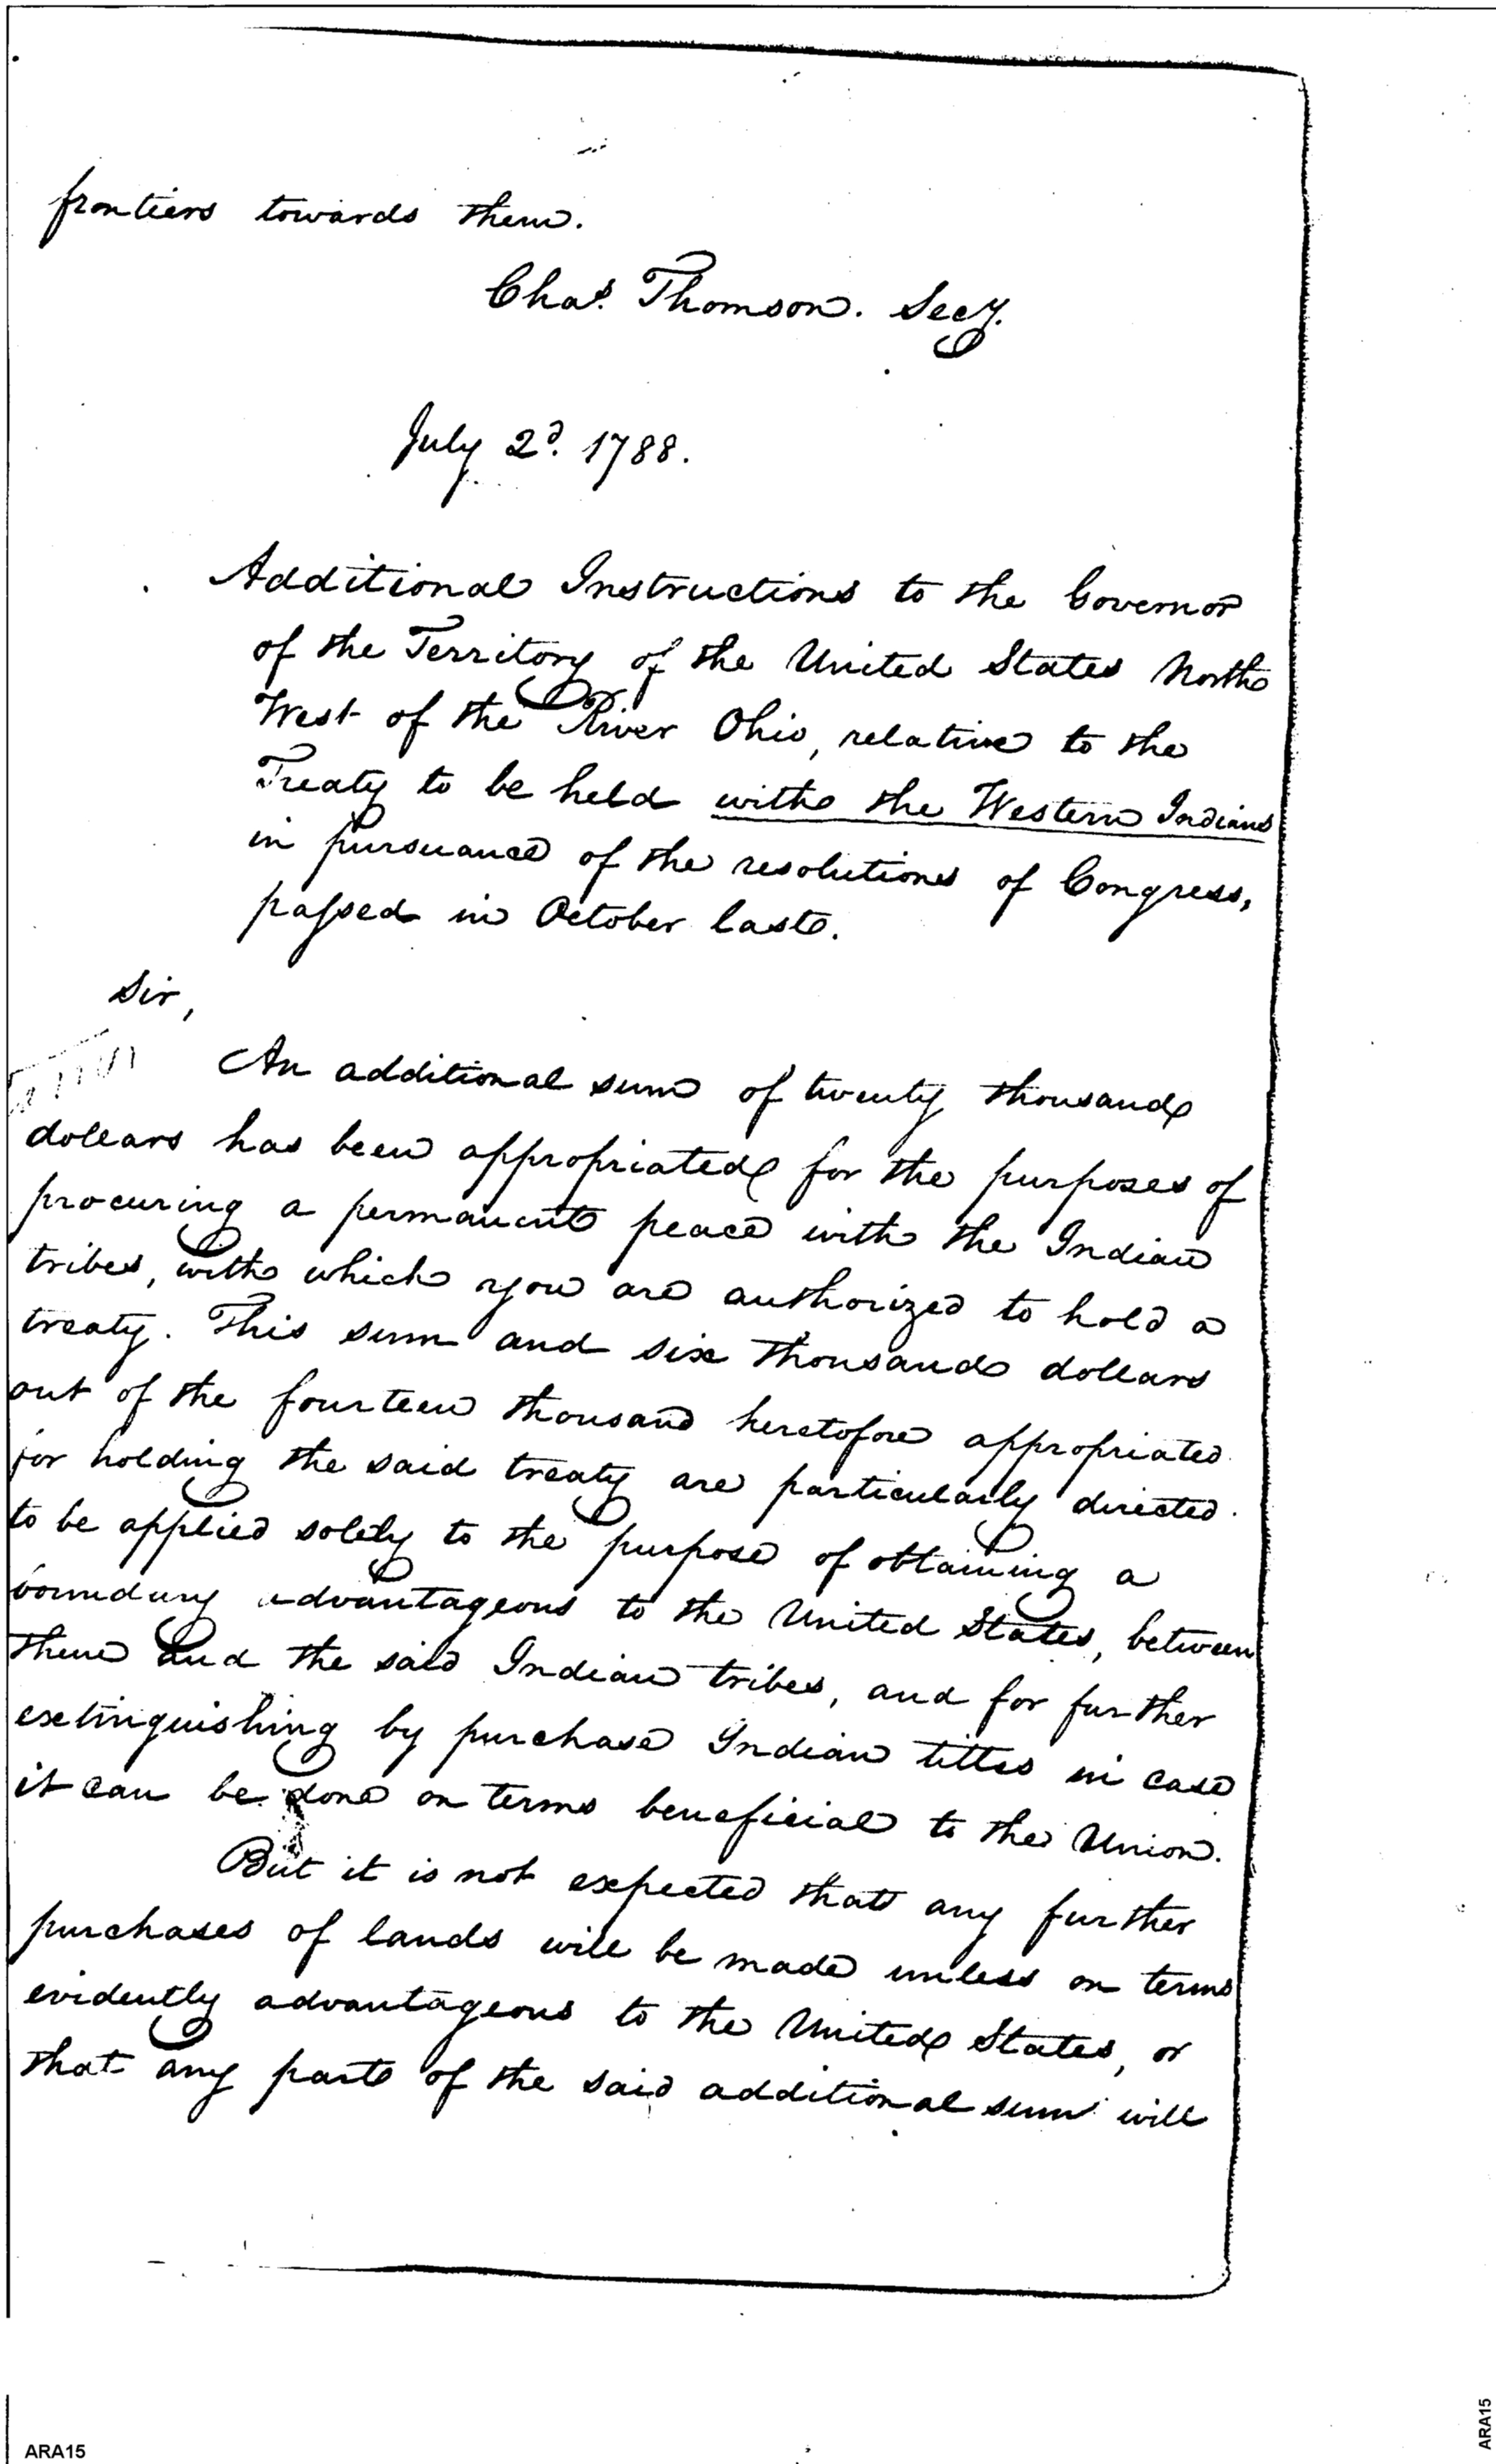 frontiers towards them.
Chas. Thomson. Secy.
July 2d. 1788.
Additional Instructions to the Governor
of the Territory of the United States North
West of the River Ohio, relative to the
Treaty to be held with the Western Indians
in pursuance of the resolutions of Congress,
passed in October last.
Sir,
An additional sum of twenty thousand
dollars has been appropriated for the purposes of
procuring a permanent peace with the Indian
tribes, with which you are authorized to hold a
treaty. This sum and six thousand dollars
out of the fourteen thousand heretofore appropriated
for holding the said treaty are particularly directed
to be applied solely to the purpose of obtaining a
boundary advantageous to the United States, between
them and the said Indian tribes, and for further
extinguishing by purchase Indian titles in case
it can be done on terms beneficial to the Union.
But it is not expected that any further
purchases of lands will be made unless on terms
evidently advantageous to the United States, or
that any part of the said additional sum will
ARA15
ARA15